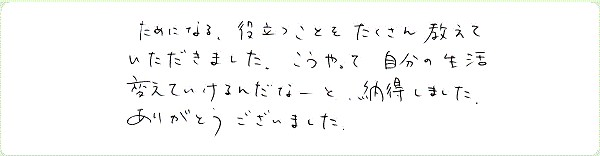 ためになる、役立つことをたくさん教えて
いただきました。こうやって自分の生活
変えていけるんだなーと、納得しました。
ありがとうございました。